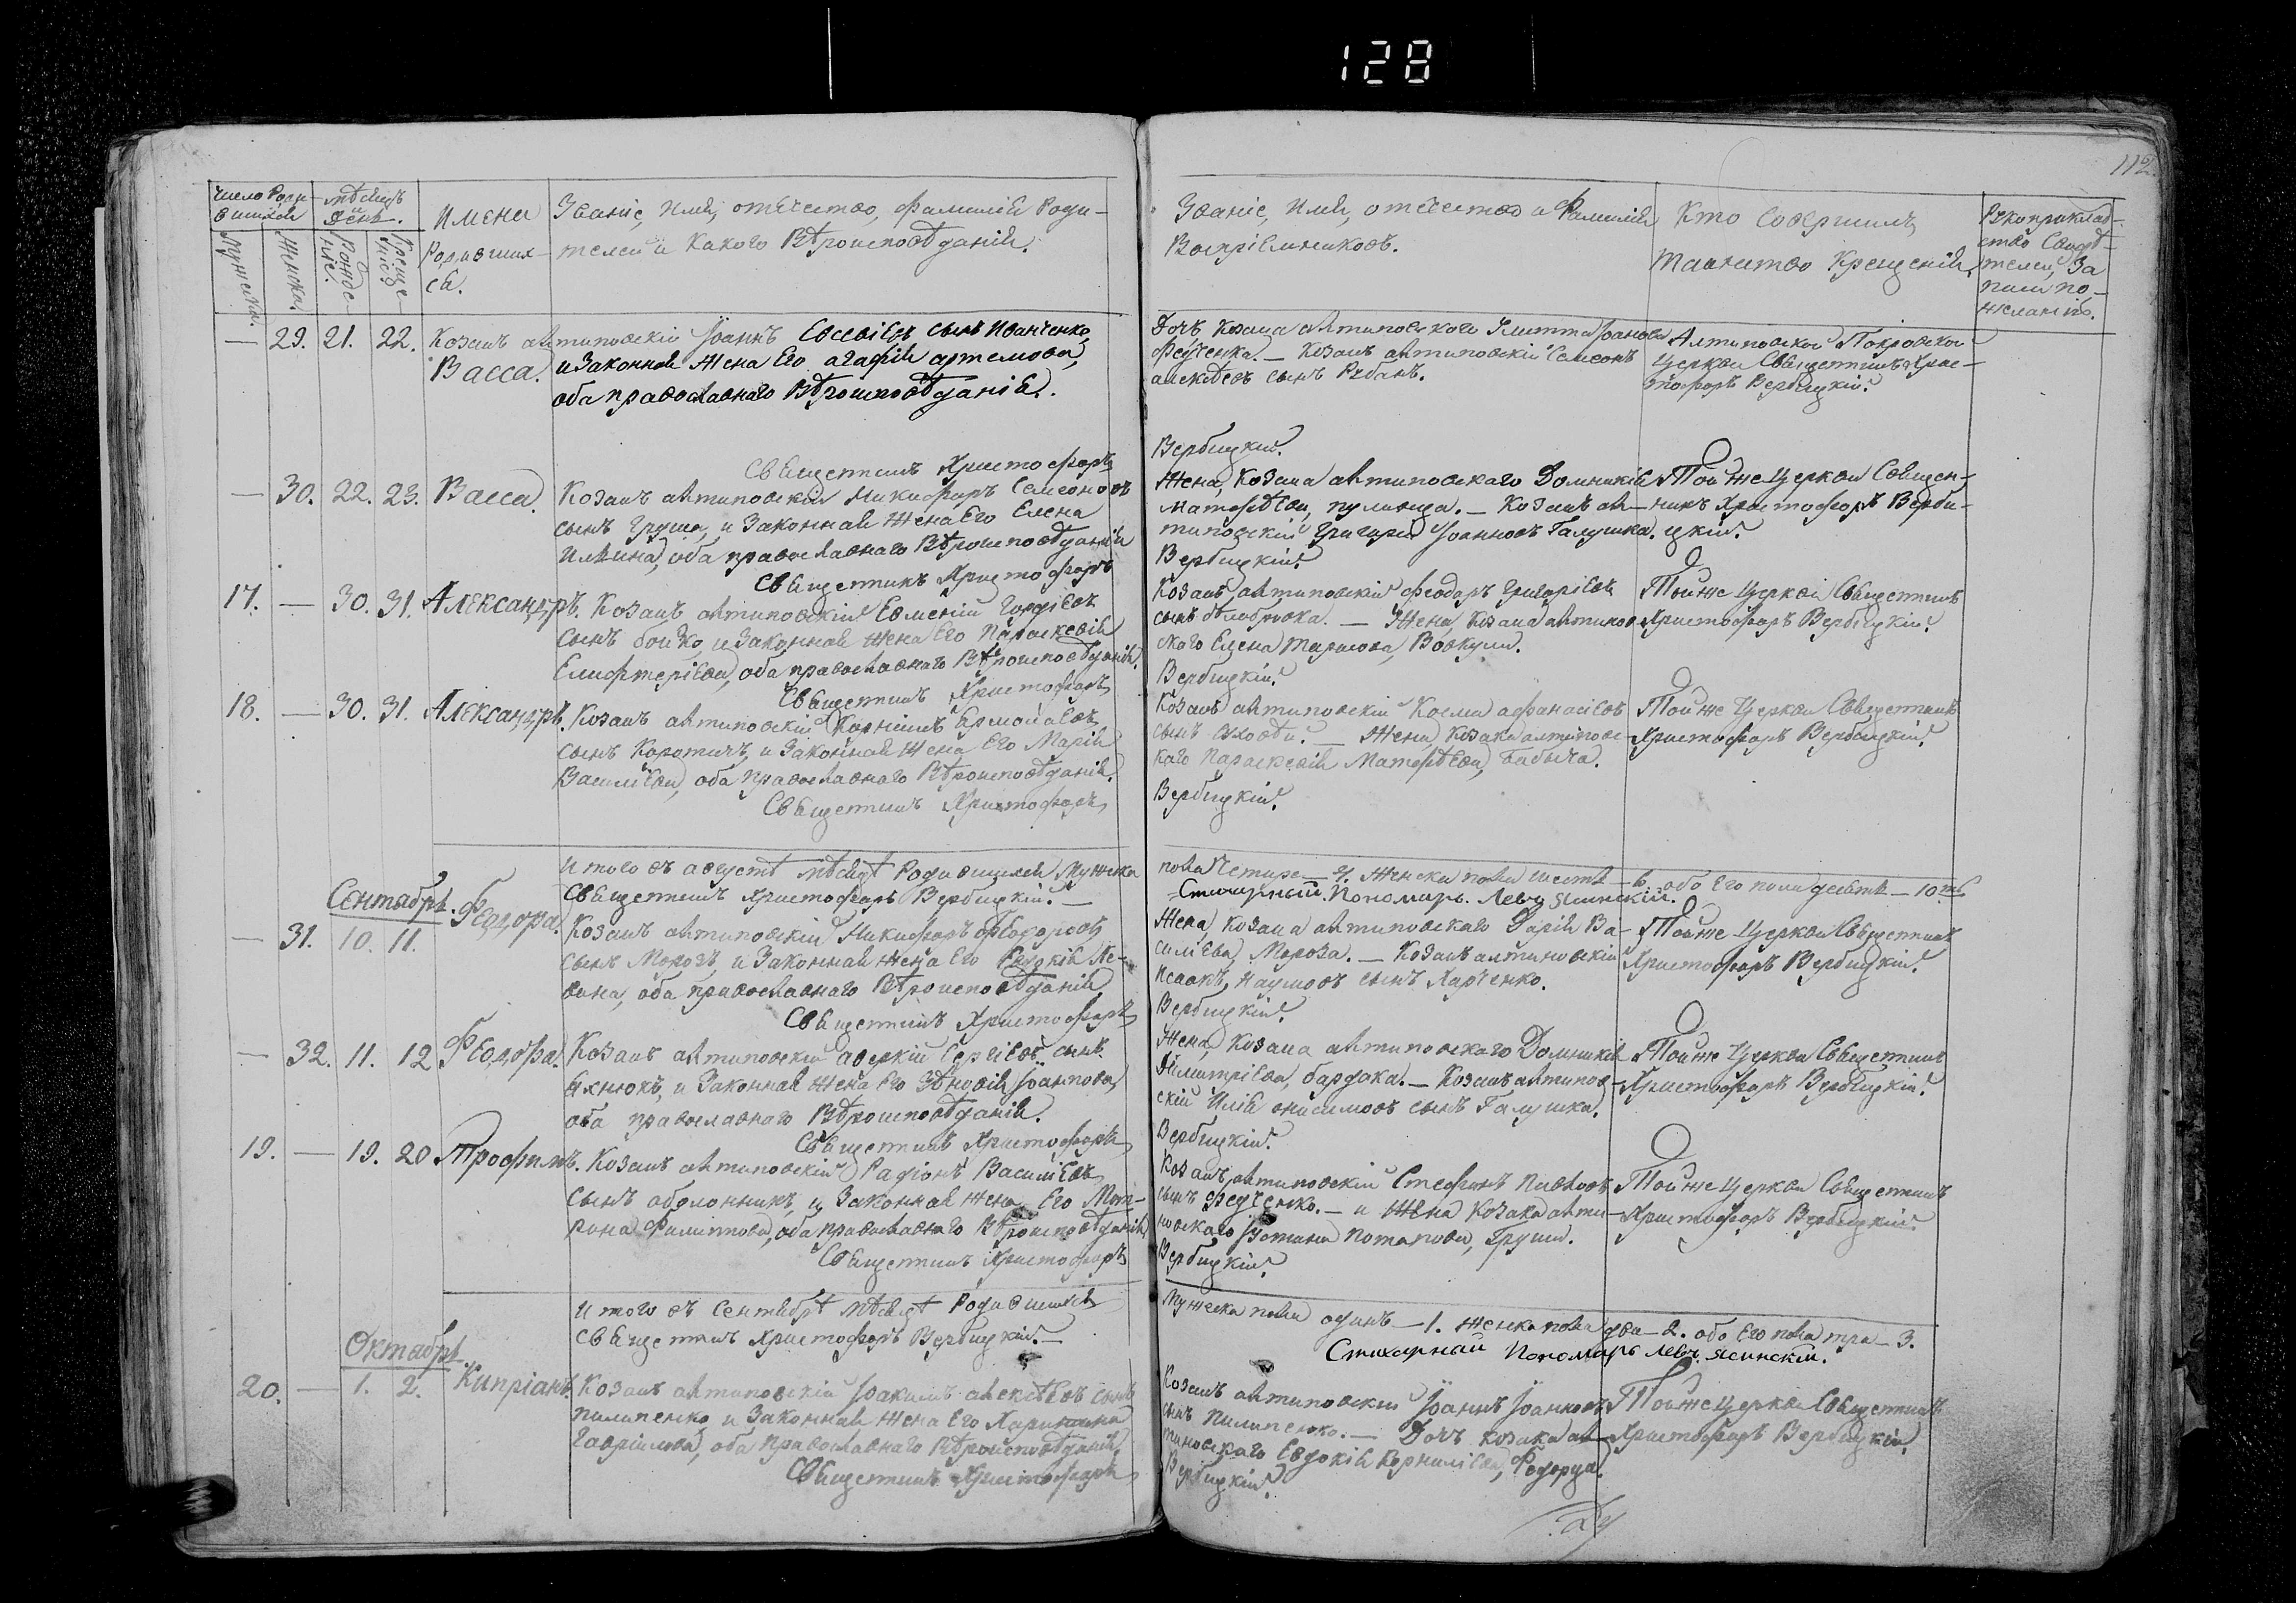 128
112
Число Роди-
вшихся
Мѣсяцъ
День.
Имена
Родивших-
ся.
Званіе, Имя, отечество, фамилія Роди-
телей и какого Вѣроисповѣданія.
Мужеска.
Женска.
Рожде-
ніе.
Креще-
ніе.
— 29. 21. 22. Козакъ антиповскій Іоаннъ Евсевіевъ сынъ Иванченко,
Васса. и Законная Жена Его агафія артемова,
оба православнаго Вѣроисповѣданія.
Священникъ Христофоръ
— 30. 22. 23. Васса. Козакъ антиповскій Никифоръ Самсоновъ
сынъ Груша, и Законная Жена Его Елена
Ильина, оба православнаго Вѣроисповѣданія
Священникъ Христофоръ
17. — 30. 31. Александръ. Козакъ антиповскій Евменій Гордіевъ
сынъ бойко, и Законная жена Его Параскевія
Елифтеріева, оба православнаго Вѣроисповѣданія.
Священникъ Христофоръ
18. — 30. 31. Александръ. Козакъ антиповскій Корнілій Ермолаевъ
сынъ Коротичъ, и Законная Жена Его Марія
Василіева, оба православнаго Вѣроисповѣданія.
Священникъ Христофоръ
Итого въ августѣ мѣсяцѣ Родившихся Мужска
Священникъ Христофоръ Вербицкій.—
Сентябрь.
— 31. 10. 11. Феодора. Козакъ антиповскій Никифоръ Феодоровъ
сынъ Морозъ, и Законная жена Его Евдокія Ле-
вина, оба православнаго Вѣроисповѣданія
Священникъ Христофоръ
— 32. 11. 12 Феодора. Козакъ антиповскій аверкій Сергіевъ сынъ
Яхнюкъ, и Законная Жена Его Зѣновія Іоаннова,
оба православнаго Вѣроисповѣданія.
Священникъ Христофоръ
19. — 19. 20 Трофимъ. Козакъ антиповскій Радіонъ Василіевъ
сынъ оболонникъ, и Законная жена Его Мот-
рона Филиппова, оба православнаго Вѣроисповѣданія
Священникъ Христофоръ
Итого въ Сентябрѣ мѣсяцѣ Родившихся
Священникъ Христофоръ Вербицкій.—
Октябрь
20. — 1. 2. Кипріанъ. Козакъ антиповскій Іоакимъ алексѣевъ сынъ
Пилипенко, и Законная Жена Его Харитина
Гавріилова, оба православнаго Вѣроисповѣданія,
Священникъ Христофоръ
Званіе, Имя, отечество и Фамилія
Воспріемниковъ.
Кто Совершилъ
таинство Крещенія.
Рукоприклад-
ство Свидѣ-
телей, За
писи по-
желанію.
Дочь Козака антиповскаго
Федченка.— Козакъ антиповскій Самсонъ
алексѣевъ сынъ Рубанъ.
Антиповской Покровской
Церкви Священникъ Хрис-
тофоръ Вербицкій.
Вербицкій.
Жена, Козака антиповскаго Домникія
Матфѣева, пулинца.— Козакъ ан-
типовскій Григорій Іоанновъ Галушка.
Той же Церкви Священ-
никъ Христофоръ Верби-
цкій.
Вербицкій.
Козакъ антиповскій феодоръ Григоріевъ
сынъ.— Жена, Козака антипов-
скаго Елена Тарасова, Вовкуши.
Той же Церкви Священникъ
Христофоръ Вербицкій.
Вербицкій.
Козакъ антиповскій Косма афанасіевъ
сынъ.— Жена, Козака антиповс-
каго Параскевія Матфѣева, Бабыча.
Той же Церкви Священникъ
Христофоръ Вербицкій.
Вербицкій.
пола Четыре— 4. Женска пола шесть— 6. обо Его пола десять— 10.ть
Стихарный Пономарь. Левъ Ясинскій.
Жена, Козака антиповскаго Дарія Ва-
силіева, Мороза.— Козакъ антиповскій
Исаакъ, Наумовъ сынъ Харченко.
Той же Церкви Священникъ
Христофоръ Вербицкій.
Вербицкій.
Жена, Козака антиповскаго Домникія
Димитріева, бардака.— Козакъ антипов-
скій Илія онисимовъ сынъ Галушка.
Той же Церкви Священникъ
Христофоръ Вербицкій.
Вербицкій.
Козакъ, антиповскій Стефанъ Павловъ
сынъ Федченко.— и Жена Козака анти-
повскаго Іустина Потапова, Груши.
Той же Церкви Священникъ
Христофоръ Вербицкій.
Вербицкій.
Мужеска пола одинъ— 1. женска пола два— 2. обо Его пола три— 3.
Стихарный Пономарь Левъ Ясинскій.
Козакъ антиповскій Іоаннъ Іоанновъ
сынъ Пилипенко.— Дочь козака ан-
типовскаго Евдокія Корниліева, Федорца.
Той же Церкви Священникъ
Христофоръ Вербицкій.
Вербицкій.